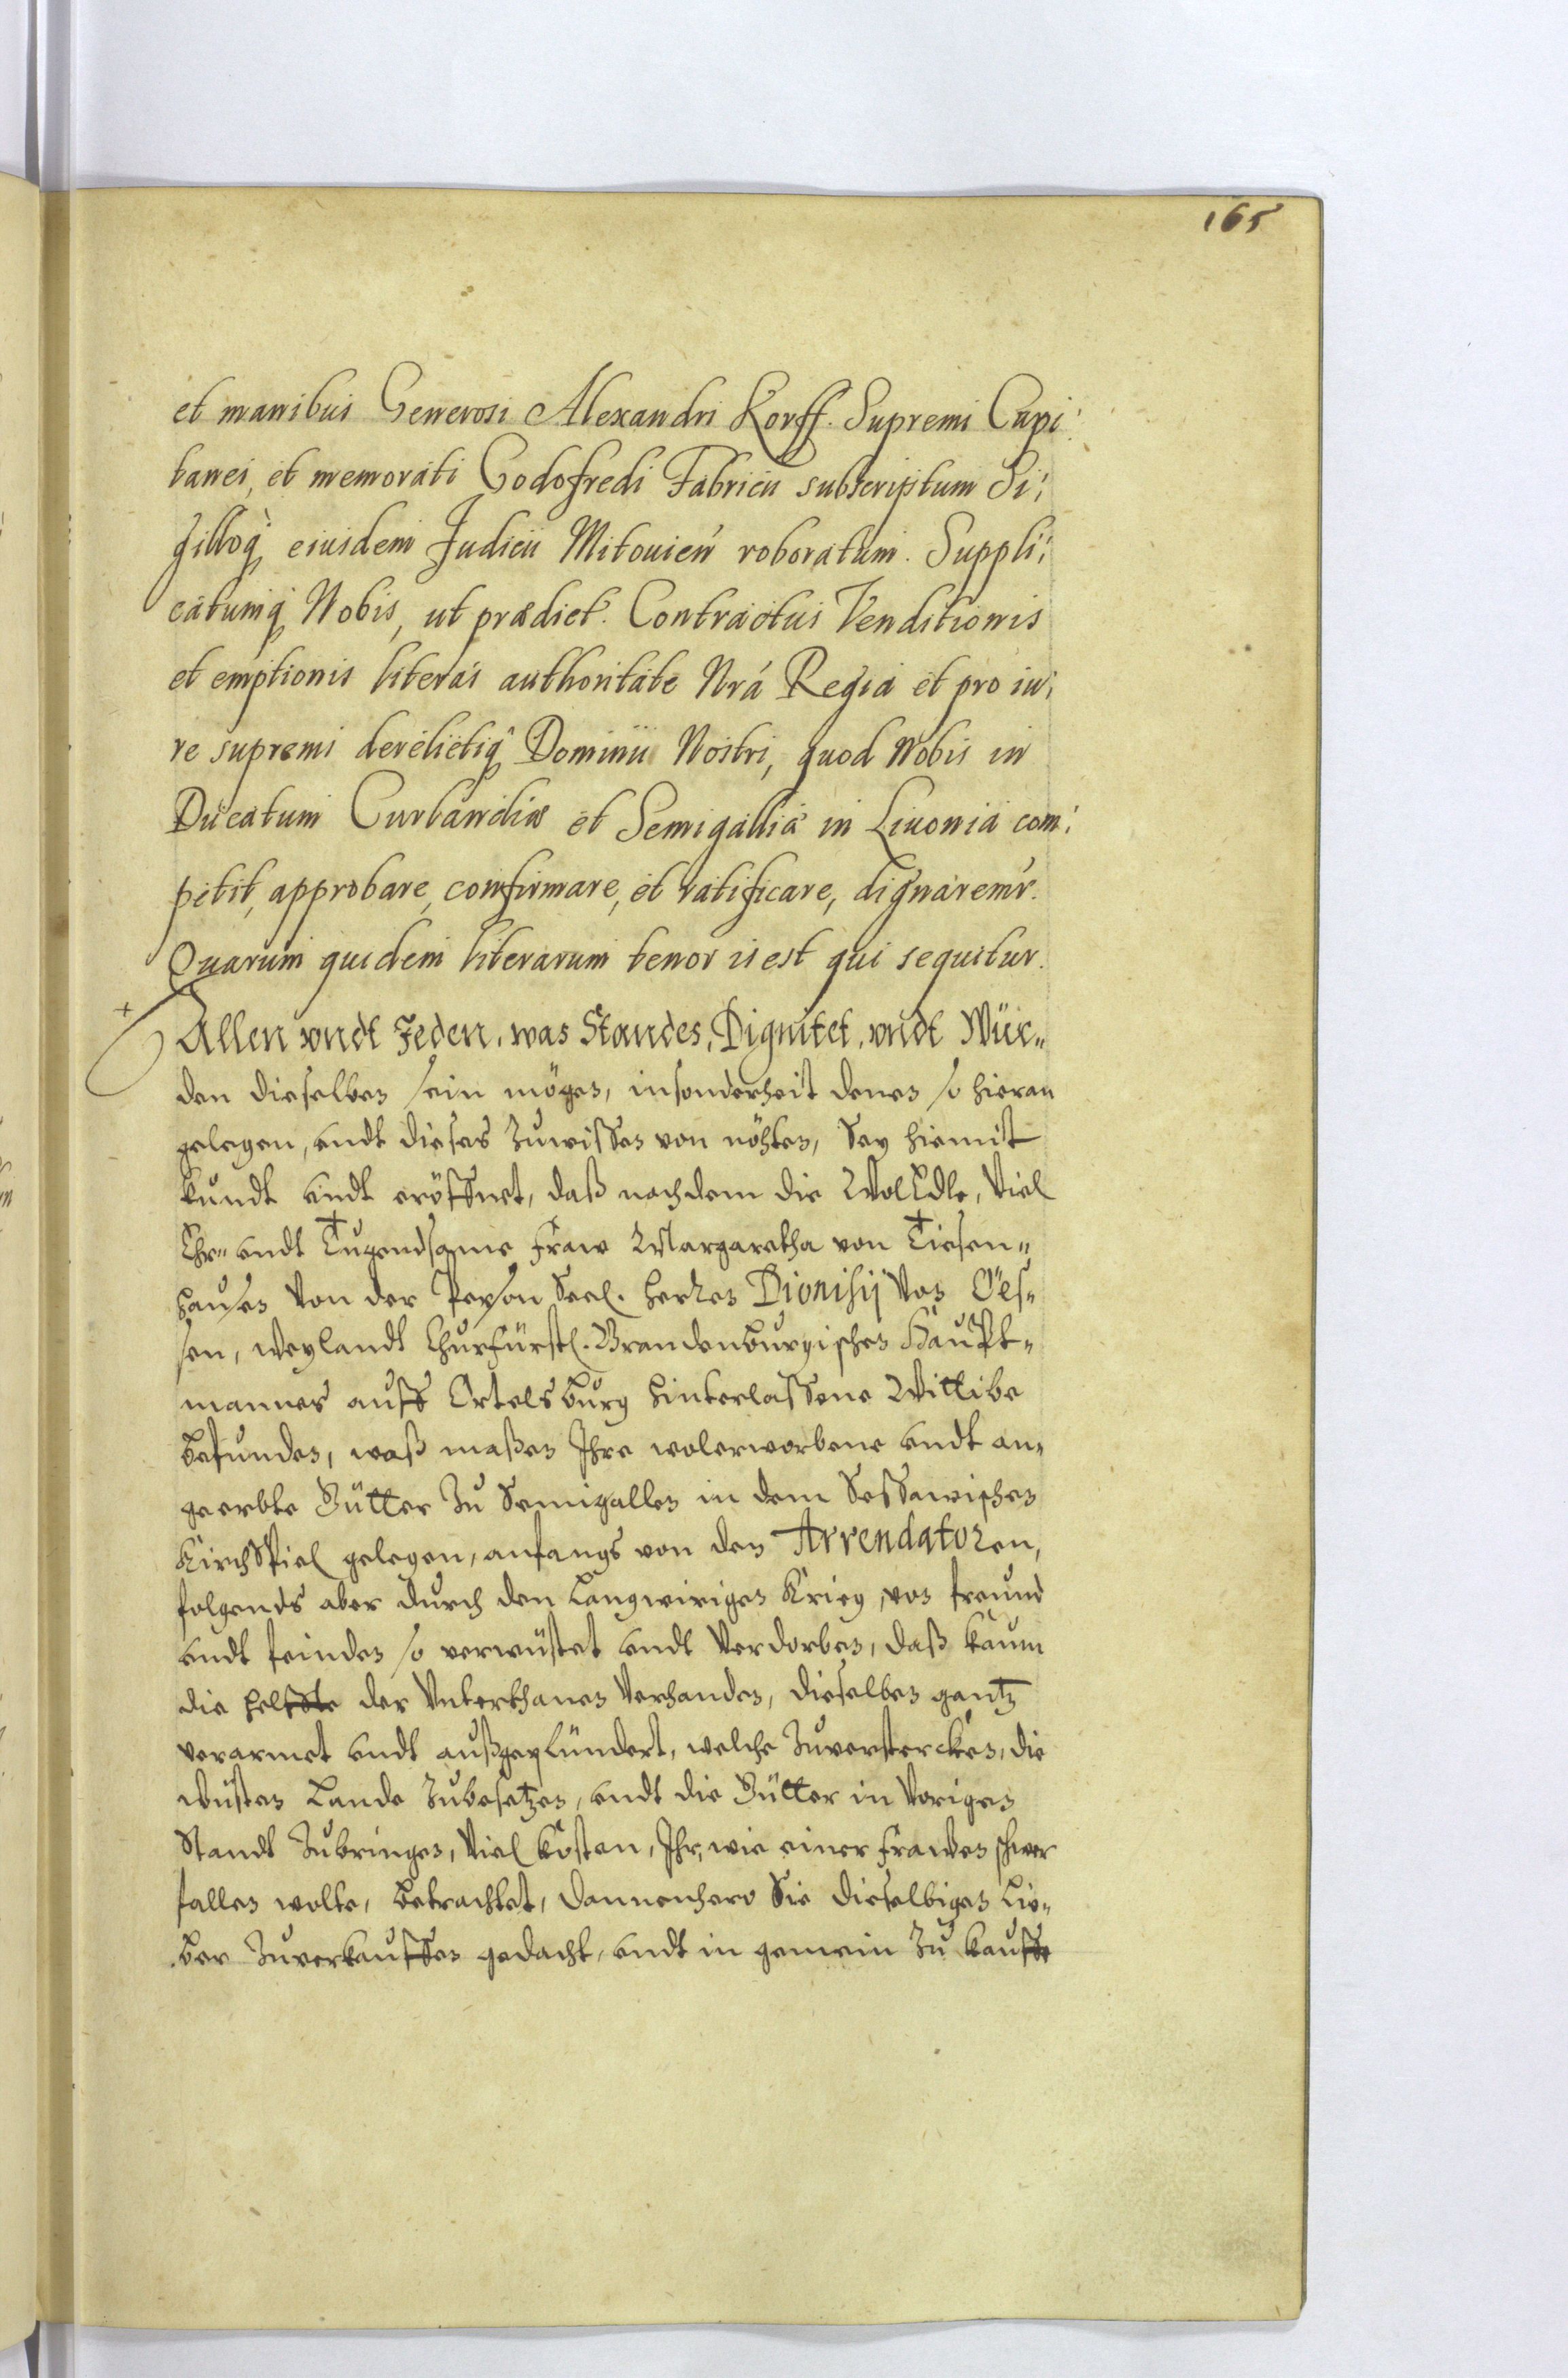 165
et manibus Generosi Alexandri Korff. Supremi Capi:
tanei, et memorati Godofredi Fabricii subscriptum Si:
gilloq; eiusdem Judicii Mitouien̄ roboratum. Suppli:
catumq; Nobis, ut prædict. Contractus Venditionis
et emptionis literas authoritate Nrá Regia et pro iu:
re supremi derelictiq; Dominii Nostri, quod Nobis in
Ducatum Curlandiæ et Semigalliæ in Liuonia com:
petit, approbare, confirmare, et ratificare, dignaremr.
Quarum quidem literarum tenor is est qui sequitur.
Allen vndt Jeden, was Standes, Dignitet, vndt Wür„
den dieselben sein mögen, insonderheit denen so hieran
gelegen, vndt dieses Zuwissen von nöhten, Sey hiemit
kundt vndt eröffnet, daß nachdem die WolEdle, Viel
Ehr„ vndt Tugendsame Fraw Margaretha von Tiesen„
hausen Von der Person Seel. Herren Dionisij Von Öls„
sen, weylandt Churfürstl. Brandenburgischen Haupt„
mannes auff Ortelsburg hinterlassene Wittibe
befunden, waß maßen Ihre wolerworbene vndt an„
geerbte Gütter Zu Semigallen in dem Sessawischen
KirchSpiel gelegen, anfangs von den Arrendatoren,
folgends aber durch den Langwirigen Krieg, von freund
vndt feinden so verwüstet vndt Verdorben, daß kaum
die helffte der Vnterthanen Verhanden, dieselben gantz
verarmet vndt außgeplündert, welche Zuverstercken, die
wüsten Lande Zubesetzen, vndt die Gütter in Vorigen
Standt Zubringen, Viel kosten, Ihr, wie einer Frawen schwer
fallen wolte, betrachtet, dannenhero Sie dieselbigen Lie„
ber Zuverkauffen gedacht, vndt in gemein Zu kauffe